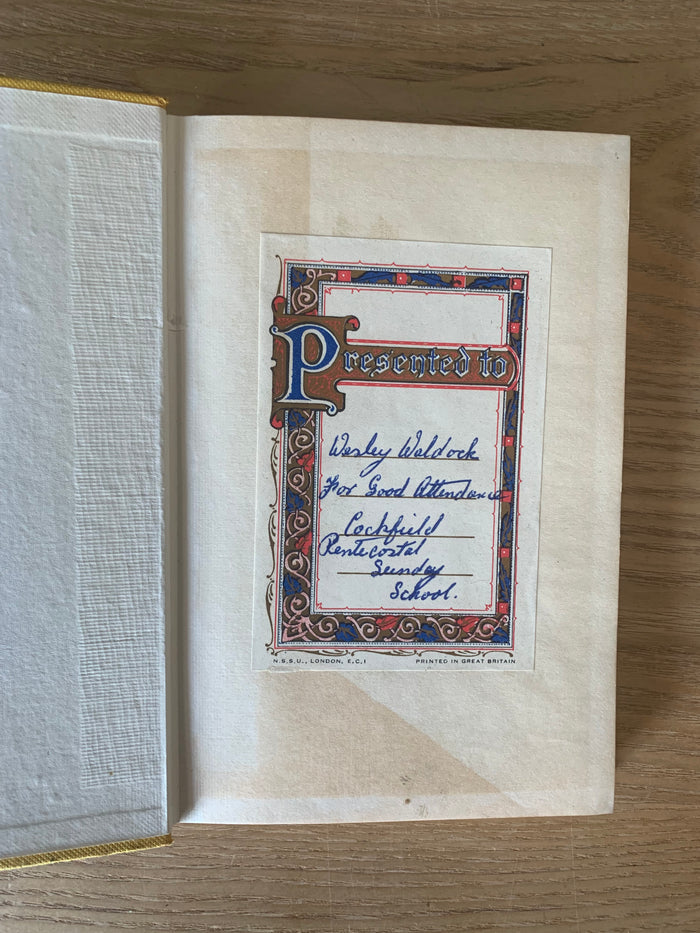 Presented to
Wesley Weldock
For Good Attendance
Cockfield
Pentecostal
Sunday
School.
N.S.S.U., LONDON, E.C.1
PRINTED IN GREAT BRITAIN